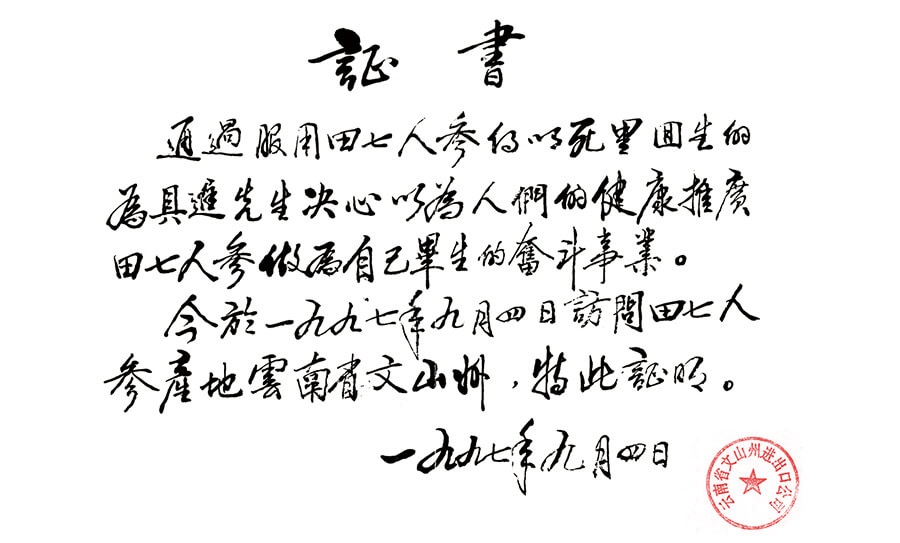 証書
通過服用田七人参得以死里囬生的
為具進先生决心以為人們的健康推廣
田七人参做為自己畢生的奮斗事業。
今於一九九七年九月四日訪問田七人
参産地雲南省文山州，特此証明。
一九九七年九月四日
云南省文山州进出口公司